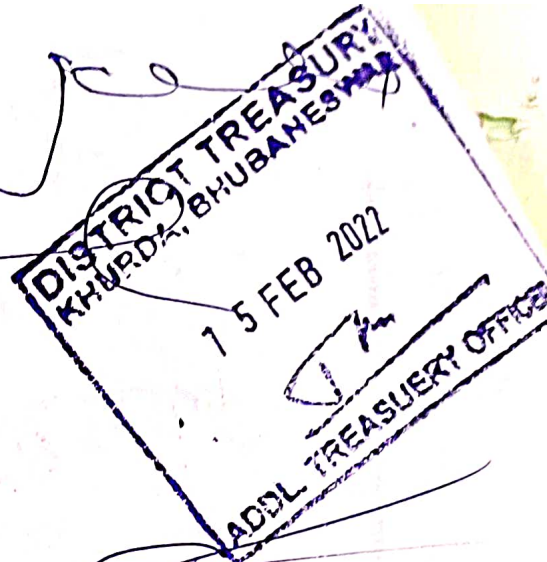 DISTRICT TREASURY
KHURDA, BHUBANESWAR
15 FEB 2022
ADDL. TREASUERY OFFICE